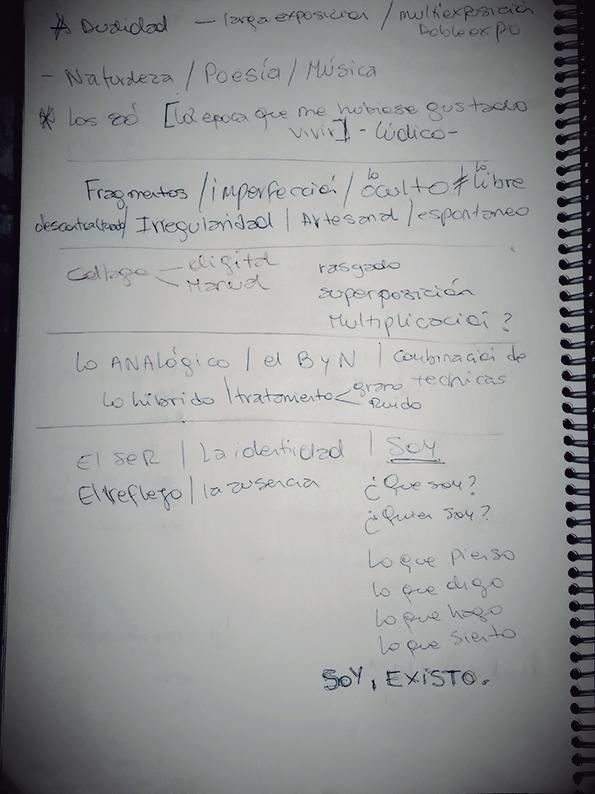 * Dualidad - larga exposición / multiexposición
Dobleexpo
- Naturaleza / Poesía / Música
* Los 80' [La epoca que me hubiese gustado
vivir] - Lúdico -
Fragmentos / imperfección / lo oculto ≠ lo libre
Irregularidad | Artesanal / espontaneo
Collage - digital
Manual
rasgado
superposición
Multiplicación ?
Lo ANALógico / el B y N | Combinación de
tecnicas
Lo híbrido / tratamiento < grano
Ruido
El SER | La identidad | SOY
El reflejo | la ausencia
¿Que soy?
¿Quien soy?
Lo que pienso
Lo que digo
Lo que hago
Lo que siento
SOY, EXISTO.